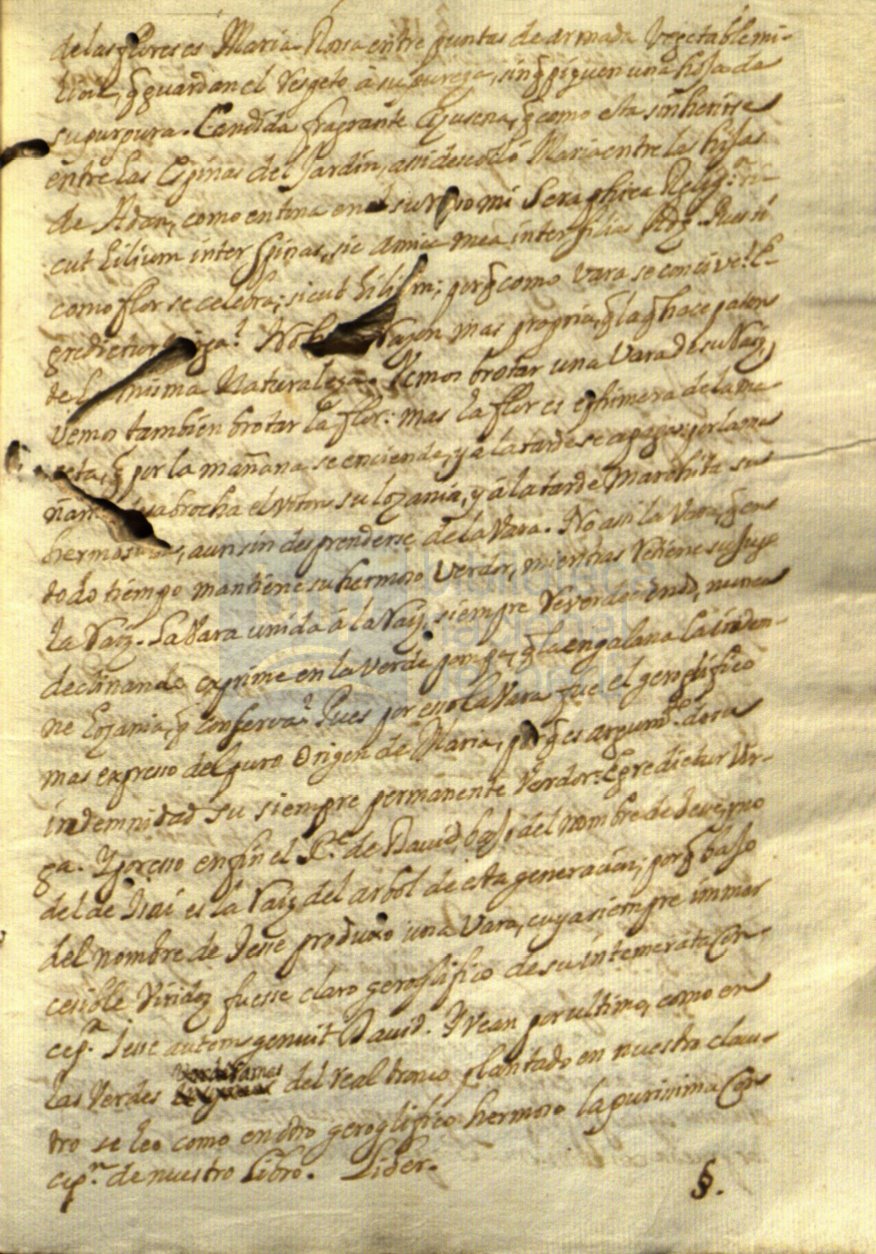 de las flores es Maria Rosa entre puntas de armada vegetable mi-
licia, q̃ guardan el respeto â su pureza, sin q̃ piquen una hoja de
su purpura. Candida fragrante Azusena, q̃ como esta sin herirse
entre las Espinas del Jardin, assi descolló Maria entre las hijas
de Adan, como entona en el su mi Seraphica Relig.ⁿ si-
cut Lilium inter Spinas, sic amica mea inter filias Adę. Pues si
como flor se celebra; sicut Lilium; porq̃ como vara se concive? E-
gredietur virga? No razon mas propria, q̃ la q̃ hace patente
de la misma Naturaleza. Vemos brotar una Vara de su Raiz,
vemos tambien brotar la flor: mas la flor es ephimera de la ma-
ceta, q̃ por la mañana se enciende, y â la tarde se apaga; por la ma-
ñana desabrocha el viton su lozania, y â la tarde Marchita su
hermosura, aun sin desprenderse de la Vara. No assi la Vara, q̃ en
todo tiempo mantiene su hermoso verdor, mientras retiene su Juga
la Raiz. La Vara unida â la Raiz, siempre reverdeciendo, nunca
declinando exprime en la verde pompa, q̃ la engalana la inden-
ne lozania, q̃ conserva? Pues por esso la Vara fue el geroglifico
mas expresso del puro Origen de Maria, porq̃ es argum.ᵗᵒ de su
indemnidad su siempre permanente Verdor: Egredietur Vir-
ga. Y por esso en fin el P.ᵉ de David, baxo del nombre de Jesse, y no
del de Isai es la Raiz del arbol de esta generacion, porq̃ baxo
del nombre de Jesse produxo una Vara, cuya siempre inmar
cesible Viridez fuesse claro geroglifico de su intemerata Con-
cep.ⁿ Jesse autem genuit David. Y vean por ultimo, como en
las Verdes del real tronco plantado en nuestro claus-
tro se leo como en otro geroglifico hermoso la purissima Con
cep.ⁿ de nuestro Libro. Liber.
§.
biblioteca
nacional
de